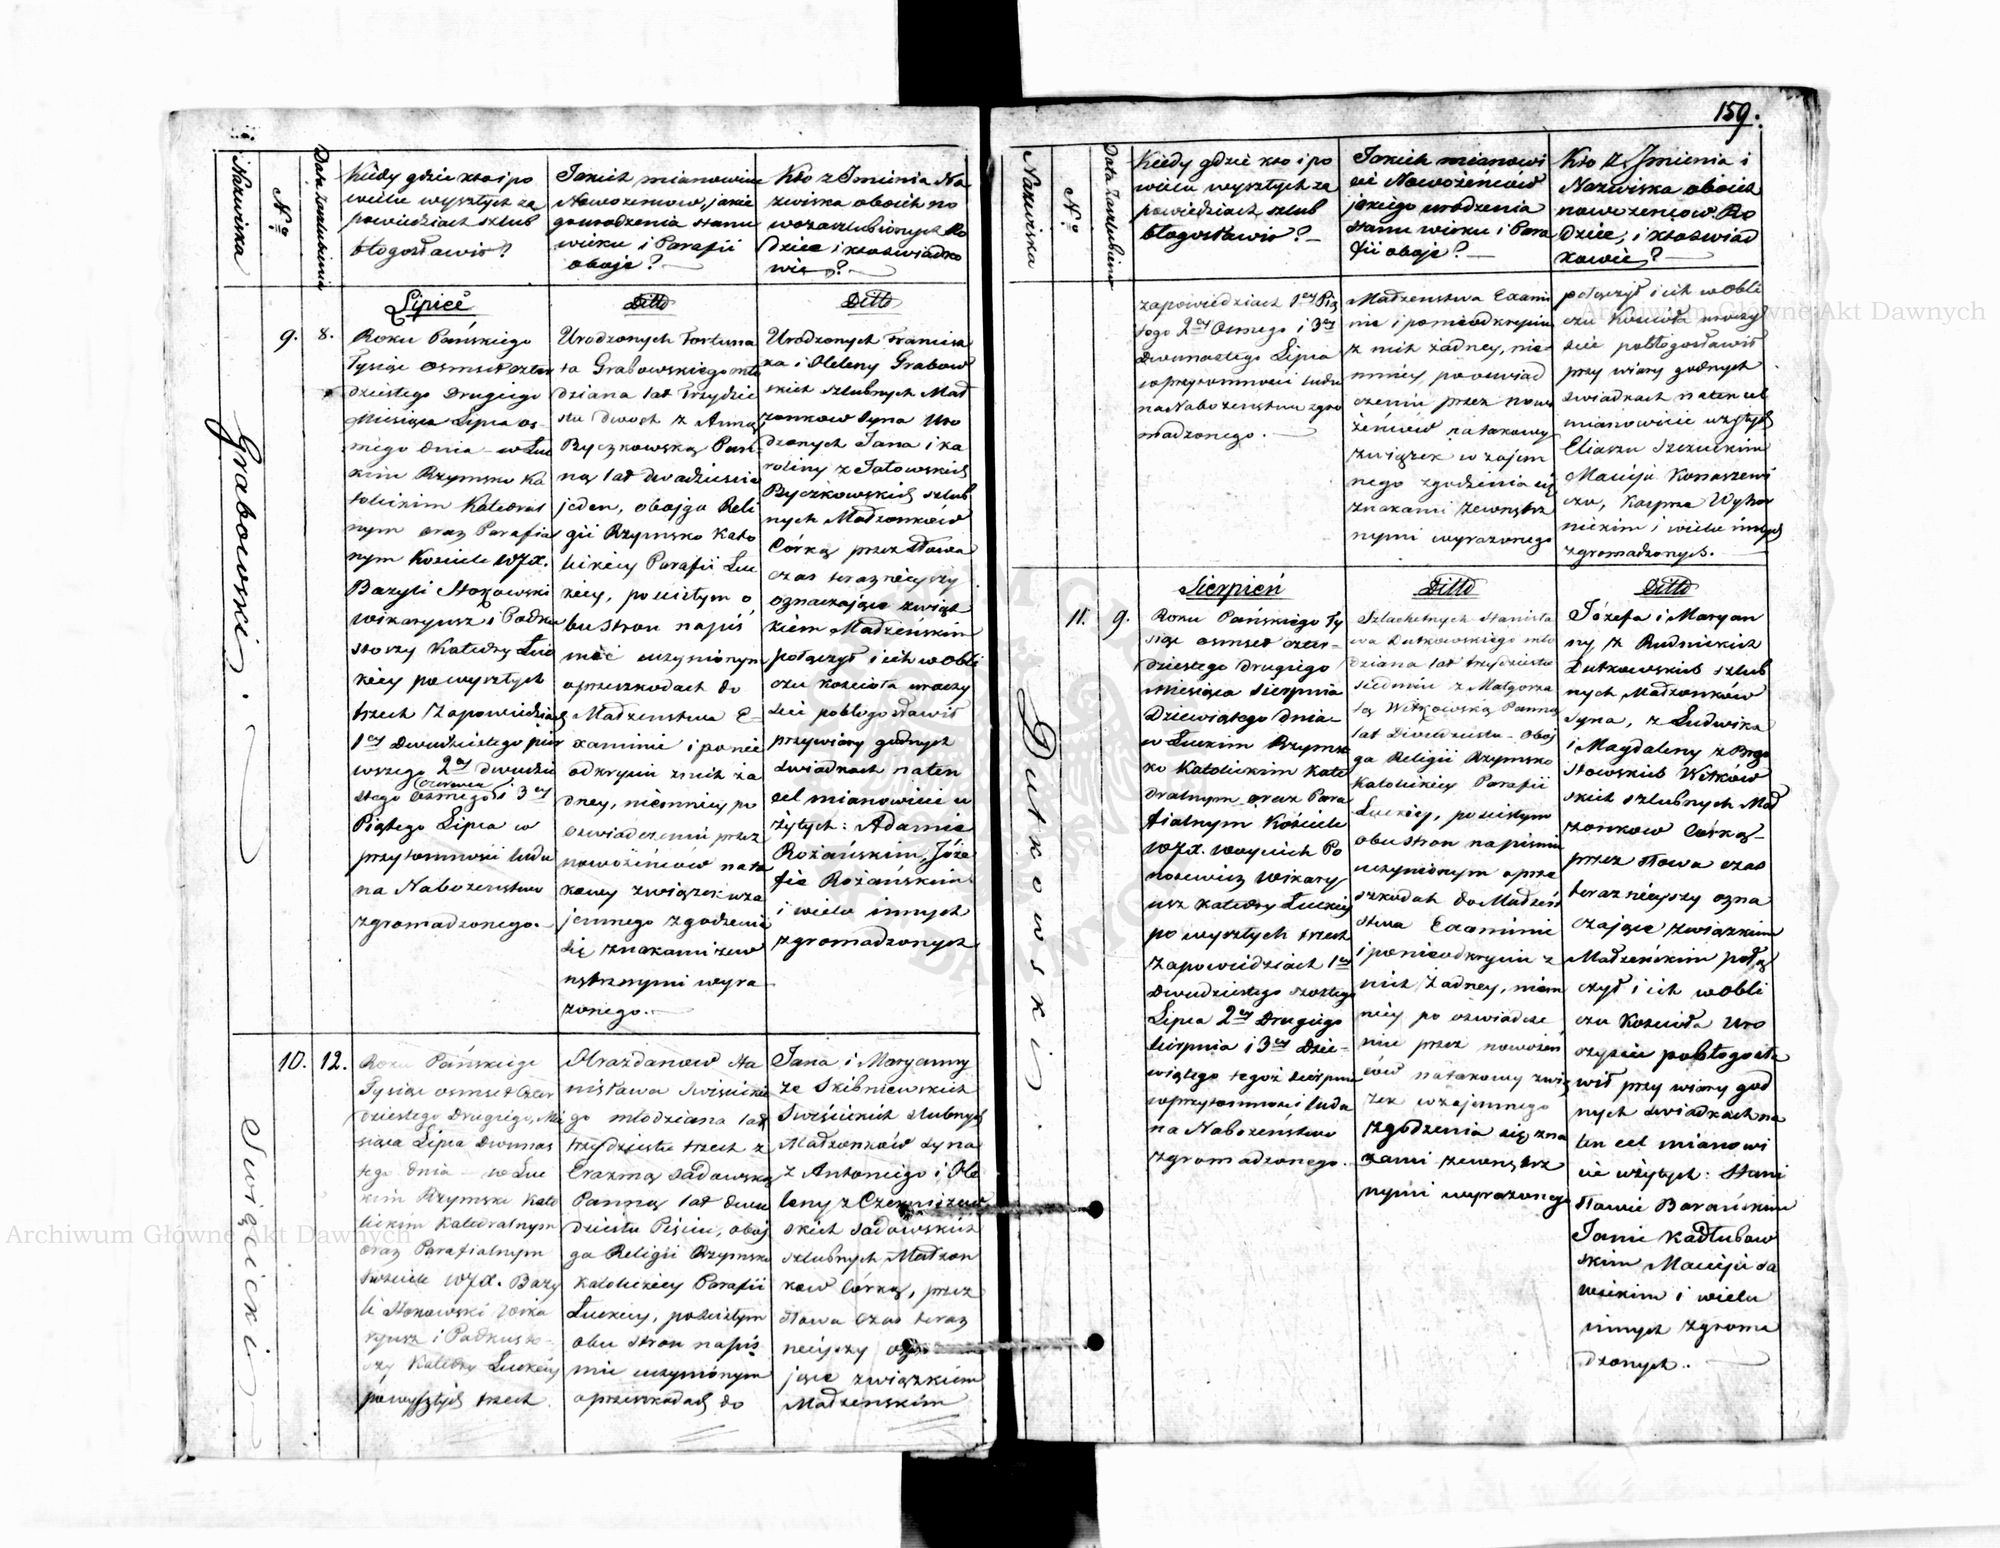 Nazwiska
No
Data Zaslubienia
Kiedy gdzie kto i po
wielu wyszłych za
powiedziach szlub
błogosławił?
Jakich mianowicie
Nowożencow, jakie
go urodzenia stanu
wieku i Parafii
oboje?
Kto z Imienia Na
zwiska oboich no
wozaszlubionych Ro
dzice i kto swiadko
wie?
Lipiec
Ditto
Ditto
Grabowski.
9.
8.
Roku Pańskiego
Tysiąc osmset czter
dziestego Drugiego
Miesiąca Lipca os-
mego dnia w Łuc
kim Rzymsko Ka
tolickim Katedral
nym oraz Parafial
nym Kosciele WJX.
Bazyli Stokowski
wikaryusz i Podku
stoszy Katedry Łuc
kiey po wyszłych
trzech Zapowiedziach
1ey Dwudziestego pier
wszego 2ey dwudzie
Czerwca
stego Osmego i 3ey
Piątego Lipca w
przytomności ludu
na Nabożenstwo
zgromadzonego.
Urodzonych Fortuna
ta Grabowskiego mło
dziana lat Trzydzie
stu dwoch z Anną
Byczkowską Pan-
ną lat dwadziescia
jeden, obojga Reli
gii Rzymsko Kato
lickiey Parafii Łuc
kiey, po scisłym o
bu stron napiś
mie uczynionym
o przeszkodach do
Małżenstwa E-
xaminie i po nie
odkryciu z nich ża
dney, niemniey po
oswiadczeniu przez
nowożeńców na ta
kowy związek wza
jemnego zgodzenia
się znakami zew
nętrznymi wyra
żonego.
Urodzonych Francisz
ka i Heleny Grabow
skich szlubnych Mał
żonkow Syna Uro
dzonych Jana i Ka
roliny z Jałowskich
Byczkowskich szlub
nych Małżonków
Córką przez słowa
czas teraznieyszy
oznaczające związ
kiem Małżeńskim
połączył i ich w obli
czu kościoła uroczy
scie pobłogosławił
przy wiary godnych
swiadkach na ten
cel mianowicie u
żytych: Adamie
Rożańskim, Józe
fie Rożańskim
i wielu innych
zgromadzonych
Swięcicki
10.
12.
Roku Pańskiego
Tysiąc osmset Czter
dziestego Drugiego, Mie
siąca Lipca Dwunas
tego dnia w Łuc
kim Rzymsko Kato
lickim Katedralnym
oraz Parafialnym
Kosciele WJX. Bazy
li Stokowski Wika
ryusz i Podkusto-
szy Katedry Łuckiey
po wyszłych trzech
Hrażdanow Sta
nisława Swięcickie
go młodziana lat
trzydziestu trzech z
Erazmą Sadowską
Panną lat dwu
dziestu Pięciu, oboj
ga Religii Rzymsko
Katolickiey Parafii
Łuckiey, po scisłym
obu stron napiś
mie uczynionym
o przeszkodach do
Jana i Maryanny
ze Skibniewskich
Swięcickich slubnych
Małżonków Syna
z Antoniego i He
leny z
skich Sadowskich
szlubnych Małżon
kow Córką, przez
słowa czas teraz
nieyszy ozna
jące związkiem
Małżenskim
159.
Nazwiska
No
Data Zaslubienia
Kiedy gdzie kto i po
wielu wyszłych za
powiedziach szlub
błogosławił?
Jakich mianowi
cie Nowożeńców
jakiego urodzenia
stanu wieku i Para
fii oboje?
Kto z Imienia i
Nazwiska oboich
nowożencow Ro
dzice, i kto swiad
kowie?
zapowiedziach 1ey Pią
tego 2ey Osmego i 3ey
Dwunastego Lipca
w przytomnosci ludu
na Nabożenstwo zgro
madzonego.
Małżenstwa Exami
nie i po nieodkryciu
z nich żadney, nie
mniey, po oswiad
czeniu przez nowo
żeńców na takowy
związek wzajem
nego zgodzenia się
znakami zewnętrz
nymi wyrażonego
połączył i ich w obli
czu Koscioła uroczy
scie pobłogosławił
przy wiary godnych
swiadkach na ten cel
mianowicie użytych
Eliaszu Szczuckim
Macieju Konaszewi
czu, Kasprze Wyho
nickim i wielu innych
zgromadzonych.
Sierpień
Ditto
Ditto
Dutkowski.
11.
9.
Roku Pańskiego Ty
siąc osmset czter-
dziestego drugiego
miesiąca Sierpnia
Dziewiątego dnia
w Łuckim Rzyms
ko Katolickim Kate
dralnym oraz Para
fialnym Kościele
WJX. Woyciech Po
nosewicz Wikary
usz Katedry Łuckiey
po wyszłych trzech
Zapowiedziach 1ey
Dwudziestego szostego
Lipca 2ey Drugiego
Sierpnia i 3ey Dzie-
wiątego tegoż Sierpnia
w przytomnosci ludu
na Nabożenstwo
zgromadzonego.
Szlachetnych Stanisła
wa Dutkowskiego mło
dziana lat trzydziestu
siedmiu z Małgorza
tą Witkowską Panną
lat Dwudziestu oboj
ga Religii Rzymsko
Katolickiey Parafii
Łuckiey, po scisłym
obu stron napismie
uczynionym o prze
szkodach do Małżeń
stwa Examinie
i po nieodkryciu z
nich żadney, niem
niey po oswiadcze
niu przez nowożeń
ców na takowy zwią
zek wzajemnego
zgodzenia się zna
kami zewnętrz
nymi wyrażonego
Józefa i Maryan
ny z Rudnickich
Dutkowskich szlub
nych Małżonków
Syna, z Ludwika
i Magdaleny z Brzo
stowskich Witkow
skich szlubnych Mał
żonkow Córką-
przez słowa czas
teraznieyszy ozna
czające związkiem
Małżeńskim połą
czył i ich w obli
czu Kościoła uro
czyscie pobłogosła
wił przy wiary god
nych swiadkach na
ten cel mianowi
cie użytych: Stani
sławie Barańskim
Janie Kadłubow
skim Macieju Sa
wickim i wielu
innych zgroma
dzonych.
Archiwum Główne Akt Dawnych
Archiwum Główne Akt Dawnych